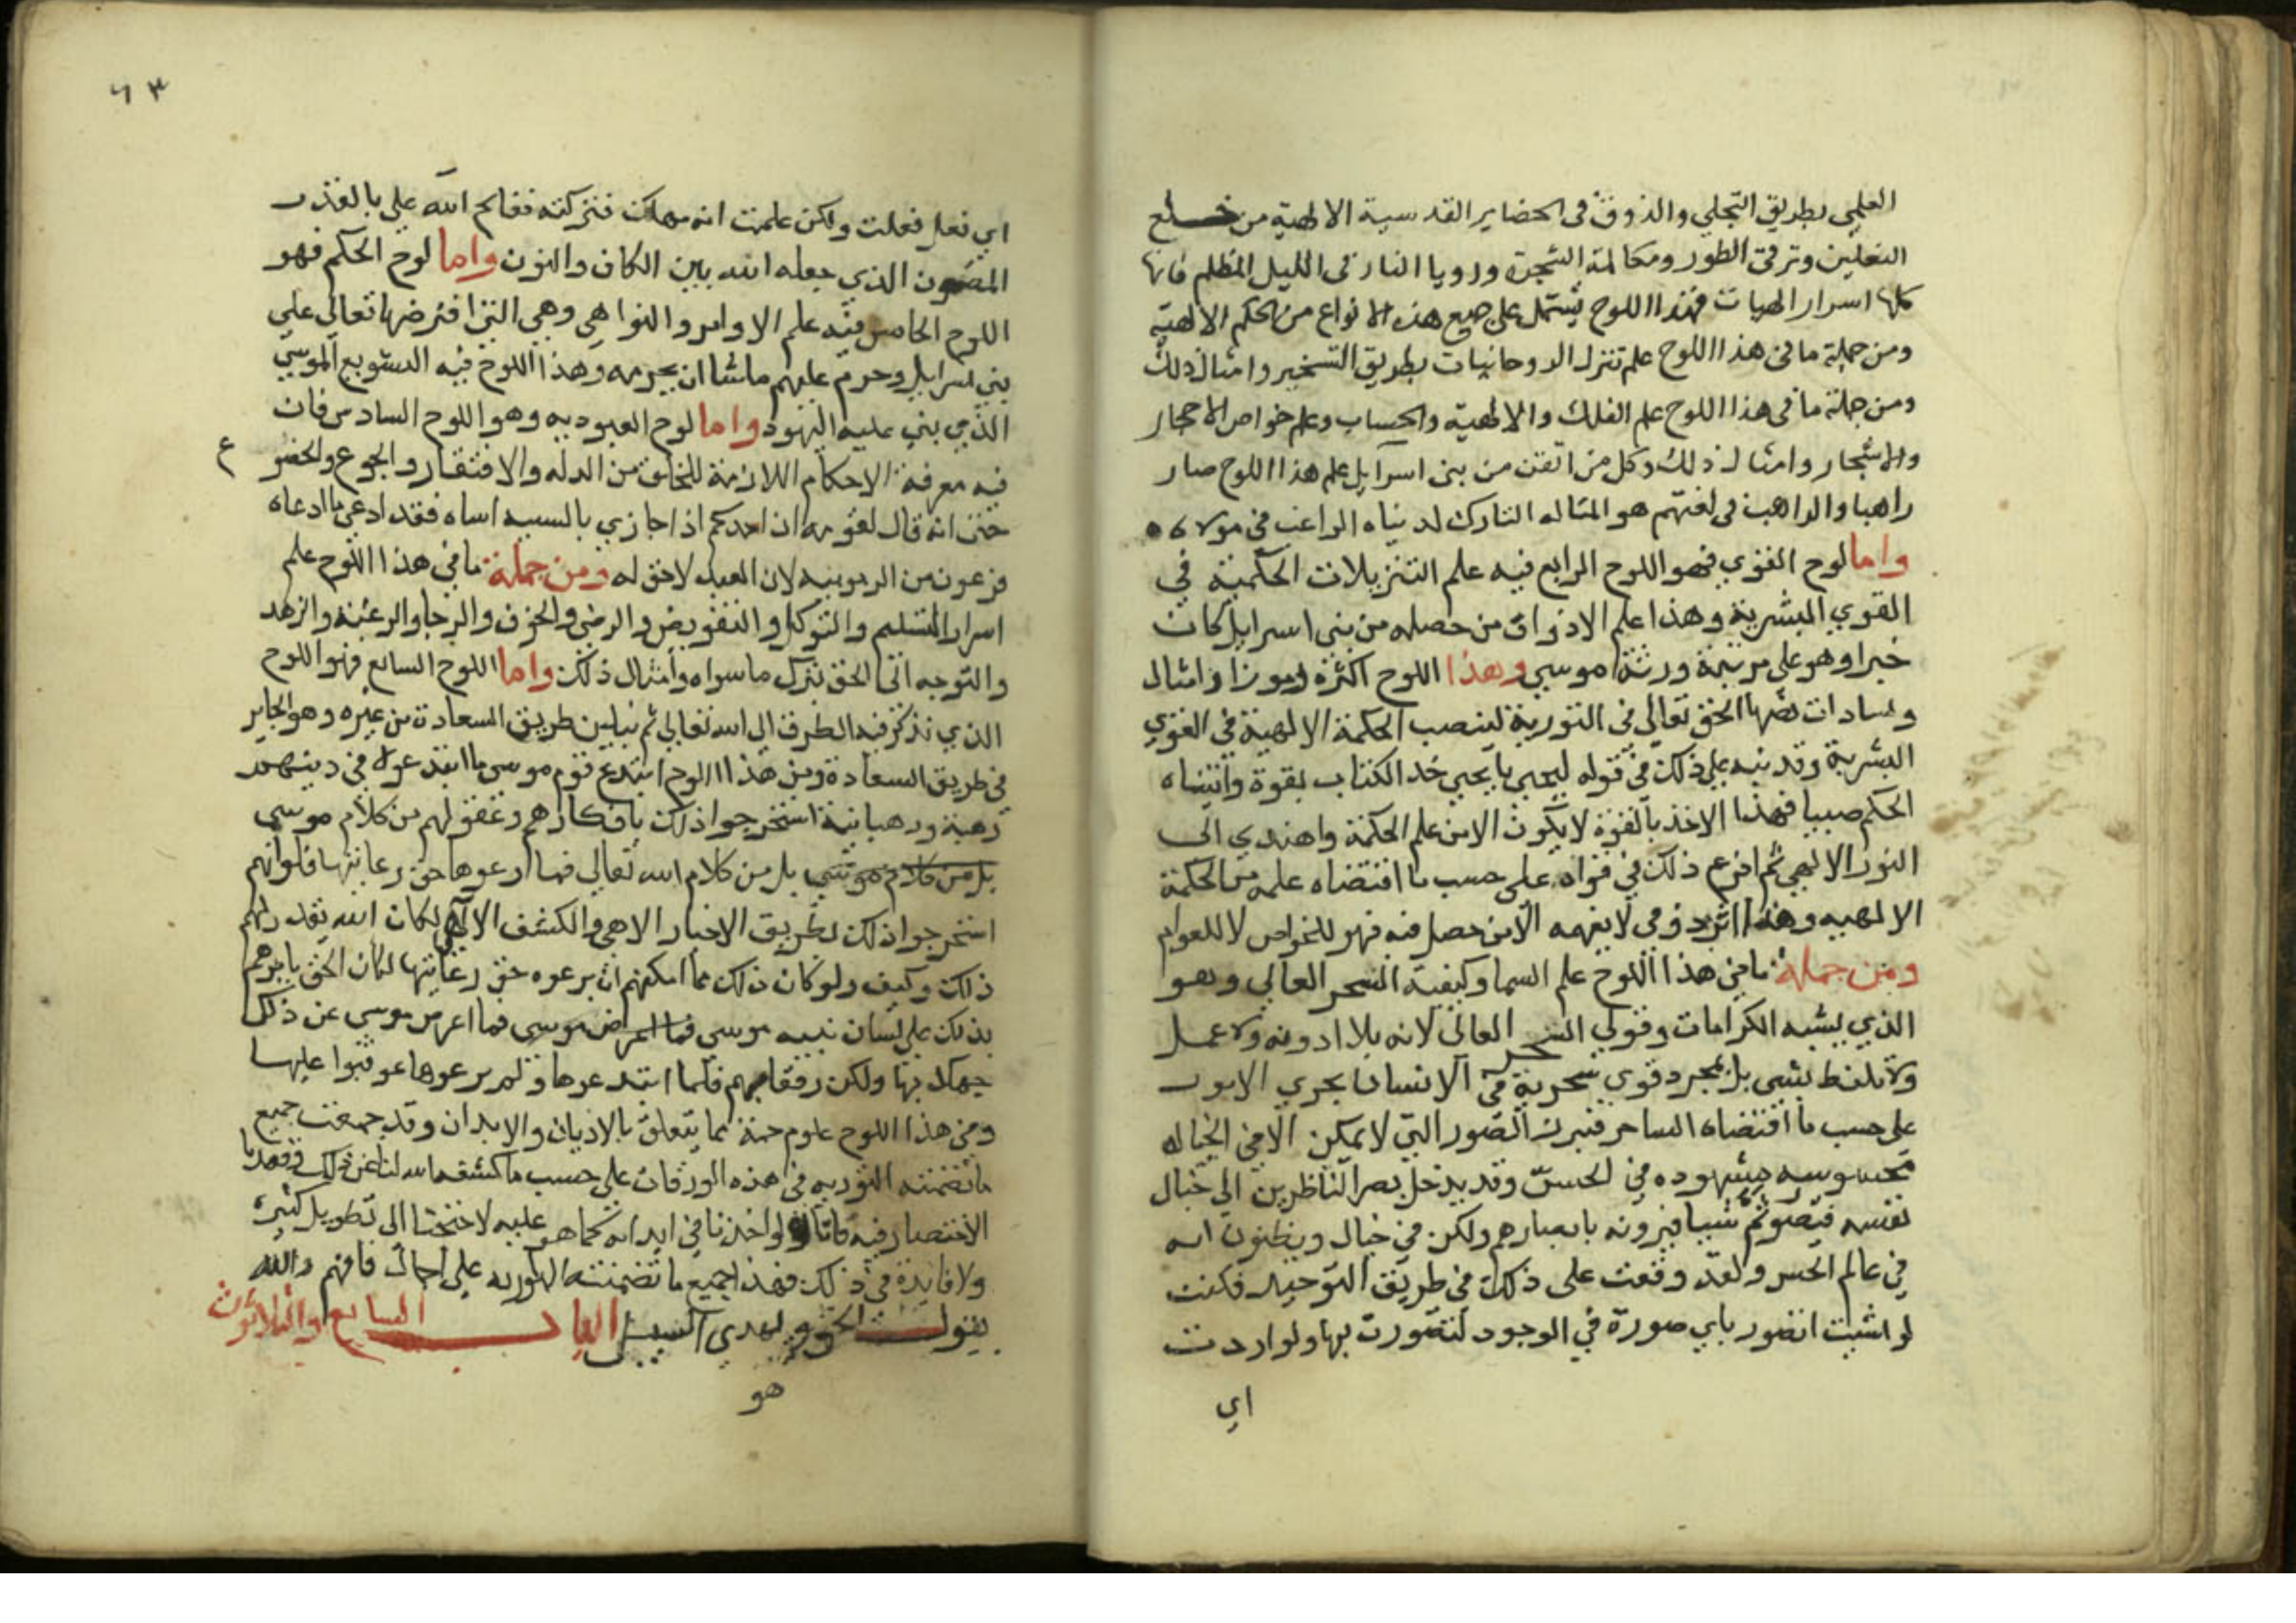 العلمي بطريق التجلي والذوق في الحضاير القدسية الالهية من خلع
النعلين وترقي الطور ومكالمة الشجرة ورويا النار في الليل المظلم فانها
كلها اسرار الهيات فهذا اللوح يشتمل على جميع هذه الانواع من الحكم الالهية
ومن جملة ما في هذا اللوح علم تنزل الروحانيات بطريق التسخير وامثال ذلك
ومن جملة ما في هذا اللوح علم الفلك والالهية والحساب وعلم خواص الاحجار
والاشجار وامثال ذلك وكل من اتقن من بني اسرآيل علم هذا اللوح صار
راهبا والراهب في لغتهم هو المتاله التارك لدنياه الراغب في مولاه
واما لوح القوي فهو اللوح الرابع فيه علم التنزيلات الحكمية في
القوي البشرية وهذا علم الاذواق من حصله من بني اسرايل كان
خبرا وهو على مرتبة ورثة موسي وهذا اللوح اكثره رموزا وامثال
وشارات نصبها الحق تعالى في التورية لينصب الحكمة الالهية في القوي
البشرية وقد نبه على ذلك في قوله ليحيى يا يحيي خذ الكتاب بقوة واتيناه
الحكم صبيا فهذا الاخذ بالقوة لا يكون الا من علم الحكمة واهتدي الى
النور الالهي ثم افرغ ذلك في قواه على حسب ما اقتضاه علمه من الحكمة
الالهيه وهذا امر ذوقي لا يفهمه الا من حصل فيه فهو للخواص لا للعوام
ومن جملة ما في هذا اللوح علم السيما وكيفية السحر العالي وهو
الذي يشبه الكرامات وقولي السحر العالى لانه بلا ادوية ولا عمل
ولا تلفظ بشي بل بمجرد قوي سحرية في الانسان يجري الامور
على حسب ما اقتضاه الساحر فتبرز الصور التي لا يمكن الا في الخيال
محسوسة مشهوده في الحس وقد يدخل بصر الناظرين الى خيال
نفسه فيصور شيا فيرونه بابصارهم ولكن في خيال ويظنون انه
في عالم الحس ولقد وقعت على ذلك في طريق التوحيد فكنت
لو اشيت اتصور باي صورة في الوجود لتصورت بها ولو اردت
اي
٦٣
اي فعل فعلت ولكن علمت انه مهلك فتركته ففتح الله علي بالقدر
المصون الذي جعله الله بين الكاف والنون واما لوح الحكم فهو
اللوح الخامس فيه علم الاوامر والنواهي وهي التي افترضها تعالى على
بني اسرايل وحرم عليهم ما شا ان يحرمه وهذا اللوح فيه التشريع الموسي
الذي بني عليه اليهود واما لوح العبودية وهو اللوح السادس فان
فيه معرفة الاحكام اللازمة للخلق من الذله والافتقار والجوع والخضوع
حتى انه قال لقومه ان احدكم اذا جازي بالسيية اساه فقد ادعي ما ادعاه
فرعون من الربوبيه لان العبد لا حق له ومن جملة ما في هذا اللوح علم
اسرار التسليم والتوكل والتفويض والرضي والخوف والرجا والرغبة والزهد
والتوجه الى الحق بترك ما سواه وامثال ذلك واما اللوح السابع فهو اللوح
الذي نذكر فيه الطرق الى الله تعالى ثم نبين طريق السعادة من غيره وهو الجاير
في طريق السعادة ومن هذا اللوح ابتدع قوم موسى ما ابتدعوه في دينهم
رهبة ورهبانية استخرجوا ذلك بافكارهم وعقولهم من كلام موسي
بل من كلام موسي بل من كلام الله تعالى فما رعوها حق رعايتها فلو انهم
استخرجوا ذلك بطريق الاخبار الالهي والكشف الالهي لكان الله يقدر لهم
ذلك وكيف ولو كان ذلك مما امكنهم ان يرعوه حق رعايتها لكان الحق يامرهم
بذلك على لسان نبيه موسى فما اعرض موسى فما اعرض موسى عن ذلك
جهلا بها ولكن رفقا بهم فلما ابتدعوها ولم يرعوها عوقبوا عليها
وفي هذا اللوح علوم جمة مما يتعلق بالاديان والابدان وقد جمعت جميع
ما تضمنته التوريه في هذه الورقات على حسب ما كشف الله لنا عن ذلك وقصدنا
الاختصار فيه فانا لو اخذنا في ابدايه كما هو عليه لاحتجنا الى تطويل كثير
ولا فايدة في ذلك فهذا جميع ما تضمنته التوريه على اجمال فافهم والله
يقول الحق وهو يهدي السبيل الباب السابع والثلاثون
هو